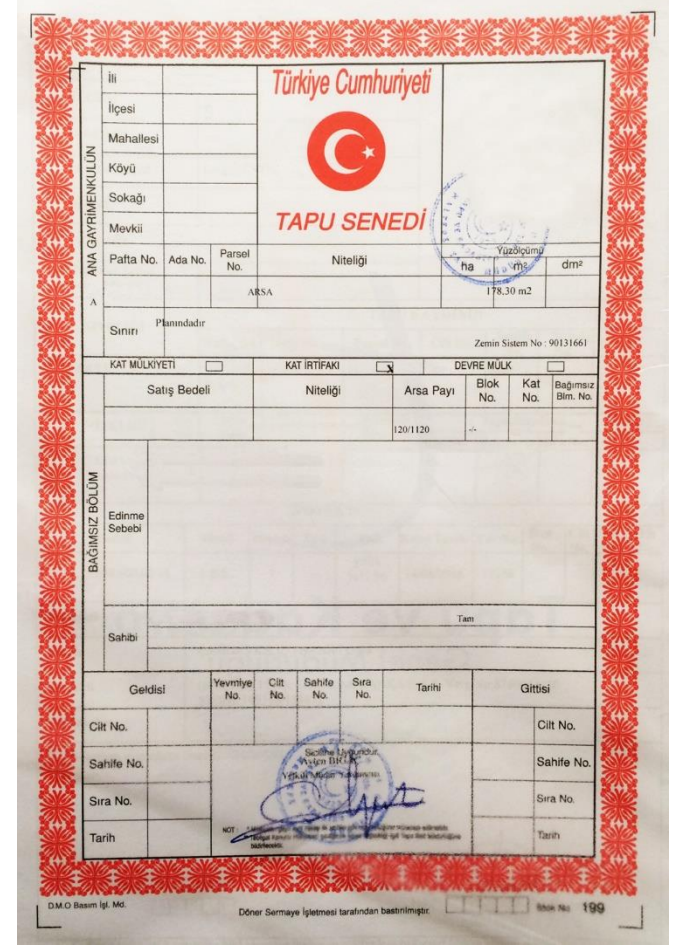 Türkiye Cumhuriyeti
TAPU SENEDİ
ANA GAYRİMENKULÜN
İli
İlçesi
Mahallesi
Köyü
Sokağı
Mevkii
Pafta No. Ada No. Parsel No. Niteliği Yüzölçümü
ha m² dm²
ARSA 178,30 m2
A
Sınırı Planındadır
Zemin Sistem No : 90131661
KAT MÜLKİYETİ KAT İRTİFAKI X DEVRE MÜLK
BAĞIMSIZ BÖLÜM
Satış Bedeli Niteliği Arsa Payı Blok No. Kat No. Bağımsız Blm. No.
120/1120 -/-
Edinme Sebebi
Sahibi
Tam
Geldisi Yevmiye No. Cilt No. Sahife No. Sıra No. Tarihi Gittisi
Cilt No. Cilt No.
Sahife No. Sahife No.
Sıra No. Sıra No.
Tarih Tarih
Siciline Uygundur.
NOT :
D.M.O Basım İşl. Md.
Döner Sermaye İşletmesi tarafından bastırılmıştır.
Stok No. 199